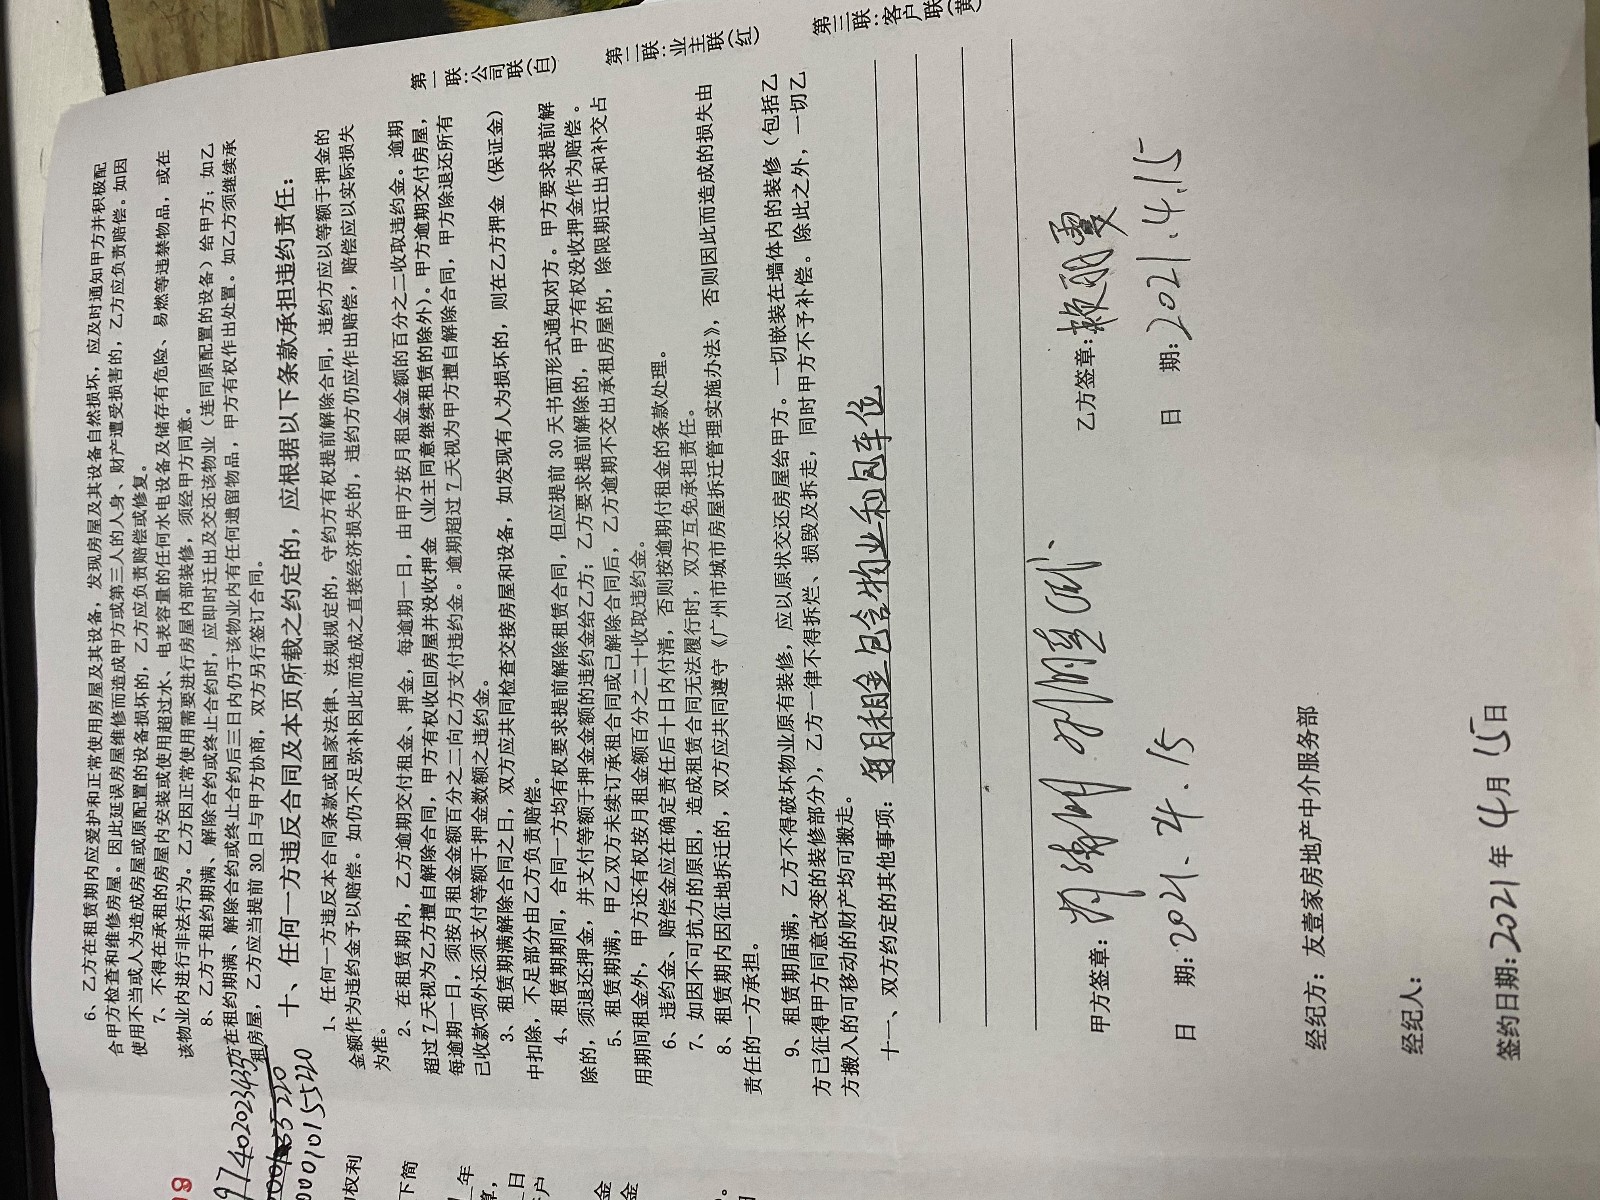 6、乙方在租赁期内应爱护和正常使用房屋及其设备，发现房屋及其设备自然损坏，应及时通知甲方并积极配
合甲方检查和维修房屋。因此延误房屋维修而造成甲方或第三人的人身、财产遭受损害的，乙方应负责赔偿。如因
使用不当或人为造成房屋或原配置的设备损坏的，乙方应负责赔偿或修复。
7、不得在承租的房屋内安装或使用超过水、电表容量的任何水电设备及储存有危险、易燃等违禁物品，或在
该物业内进行非法行为。乙方因正常使用需要进行房屋内部装修，须经甲方同意。
8、乙方于租约期满、解除合约或终止合约时，应即时迁出及交还该物业（连同原配置的设备）给甲方；如乙
方在租约期满、解除合约或终止合约后三日内仍于该物业内有任何遗留物品，甲方有权作出处置。如乙方须继续承
租房屋，乙方应当提前 30 日与甲方协商，双方另行签订合同。
十、任何一方违反合同及本页所载之约定的，应根据以下条款承担违约责任：
1、任何一方违反本合同条款或国家法律、法规规定的，守约方有权提前解除合同，违约方应以等额于押金的
金额作为违约金予以赔偿。如仍不足弥补因此而造成之直接经济损失的，违约方仍应作出赔偿，赔偿应以实际损失
为准。
2、在租赁期内，乙方逾期交付租金、押金，每逾期一日，由甲方按月租金金额的百分之二收取违约金。逾期
超过 7 天视为乙方擅自解除合同，甲方有权收回房屋并没收押金（业主同意继续租赁的除外）。甲方逾期交付房屋，
每逾期一日，须按月租金金额百分之二向乙方支付违约金。逾期超过 7 天视为甲方擅自解除合同，甲方除退还所有
已收款项外还须支付等额于押金数额之违约金。
3、租赁期满解除合同之日，双方应共同检查交接房屋和设备，如发现有人为损坏的，则在乙方押金（保证金）
中扣除，不足部分由乙方负责赔偿。
4、租赁期期间，合同一方均有权要求提前解除租赁合同，但应提前 30 天书面形式通知对方。甲方要求提前解
除的，须退还押金，并支付等额于押金金额的违约金给乙方；乙方要求提前解除的，甲方有权没收押金作为赔偿。
5、租赁期满，甲乙双方未续订承租合同或已解除合同后，乙方逾期不交出承租房屋的，除限期迁出和补交占
用期间租金外，甲方还有权按月租金额百分之二十收取违约金。
6、违约金、赔偿金应在确定责任后十日内付清，否则按逾期付租金的条款处理。
7、如因不可抗力的原因，造成租赁合同无法履行时，双方互免承担责任。
8、租赁期内因征地拆迁的，双方应共同遵守《广州市城市房屋拆迁管理实施办法》，否则因此而造成的损失由
责任的一方承担。
9、租赁期届满，乙方不得破坏物业原有装修，应以原状交还房屋给甲方。一切嵌装在墙体内的装修（包括乙
方已征得甲方同意改变的装修部分），乙方一律不得拆烂、损毁及拆走，同时甲方不予补偿。除此之外，一切乙
方搬入的可移动的财产均可搬走。
十一、双方约定的其他事项：每月租金包含物业和包车位
甲方签章：
乙方签章：赖丽霞
日 期：2021.4.15
日 期：2021.4.15
经纪方：友壹家房地产中介服务部
经纪人：
签约日期：2021年 4月 15日
第一联：公司联（白）
第二联：业主联（红）
第三联：客户联（黄）
权利
下简